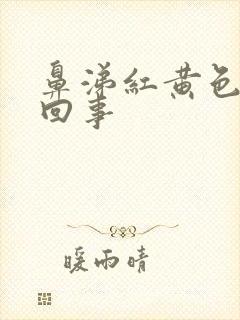 鼻涕紅黃色
回事
暖雨晴